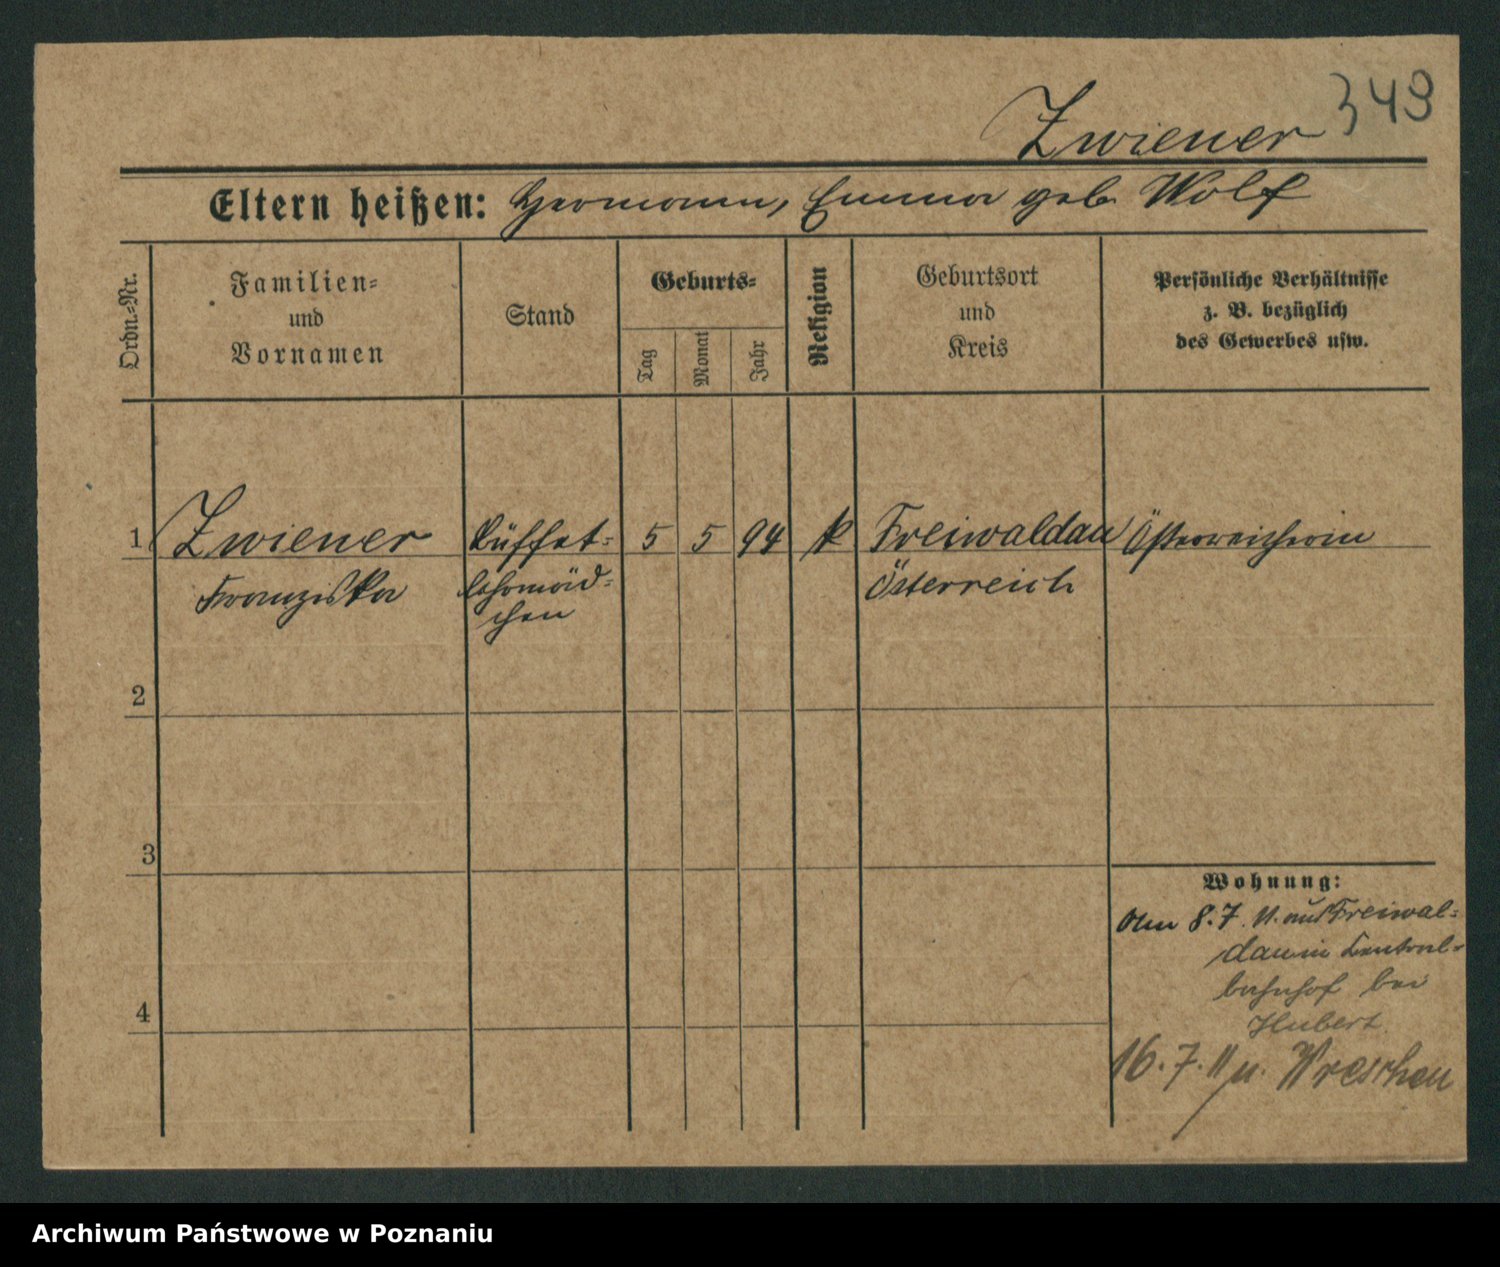 Zwiener 349
Eltern heißen: Hermann, Emma geb. Wolf
Ordn.=Nr.
Familien=
und
Vornamen
Stand
Geburts=
Tag
Monat
Jahr
Religion
Geburtsort
und
Kreis
Persönliche Verhältnisse
z. B. bezüglich
des Gewerbes usw.
1 Zwiener Büffet= 5 5 94 k Freiwaldau Österreicherin
Franziska lehrmäd= Österreich
chen
2
3
4
Wohnung:
Am 8.7.11. aus Freiwal=
dau in Central=
bahnhof bei
Hubert
16.7.11 n. Wreschen
Archiwum Państwowe w Poznaniu